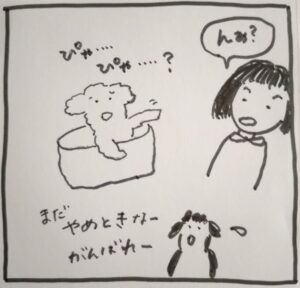 ぴゃ……
ぴゃ……?
んみ?
まだ
やめときなー
がんばれー